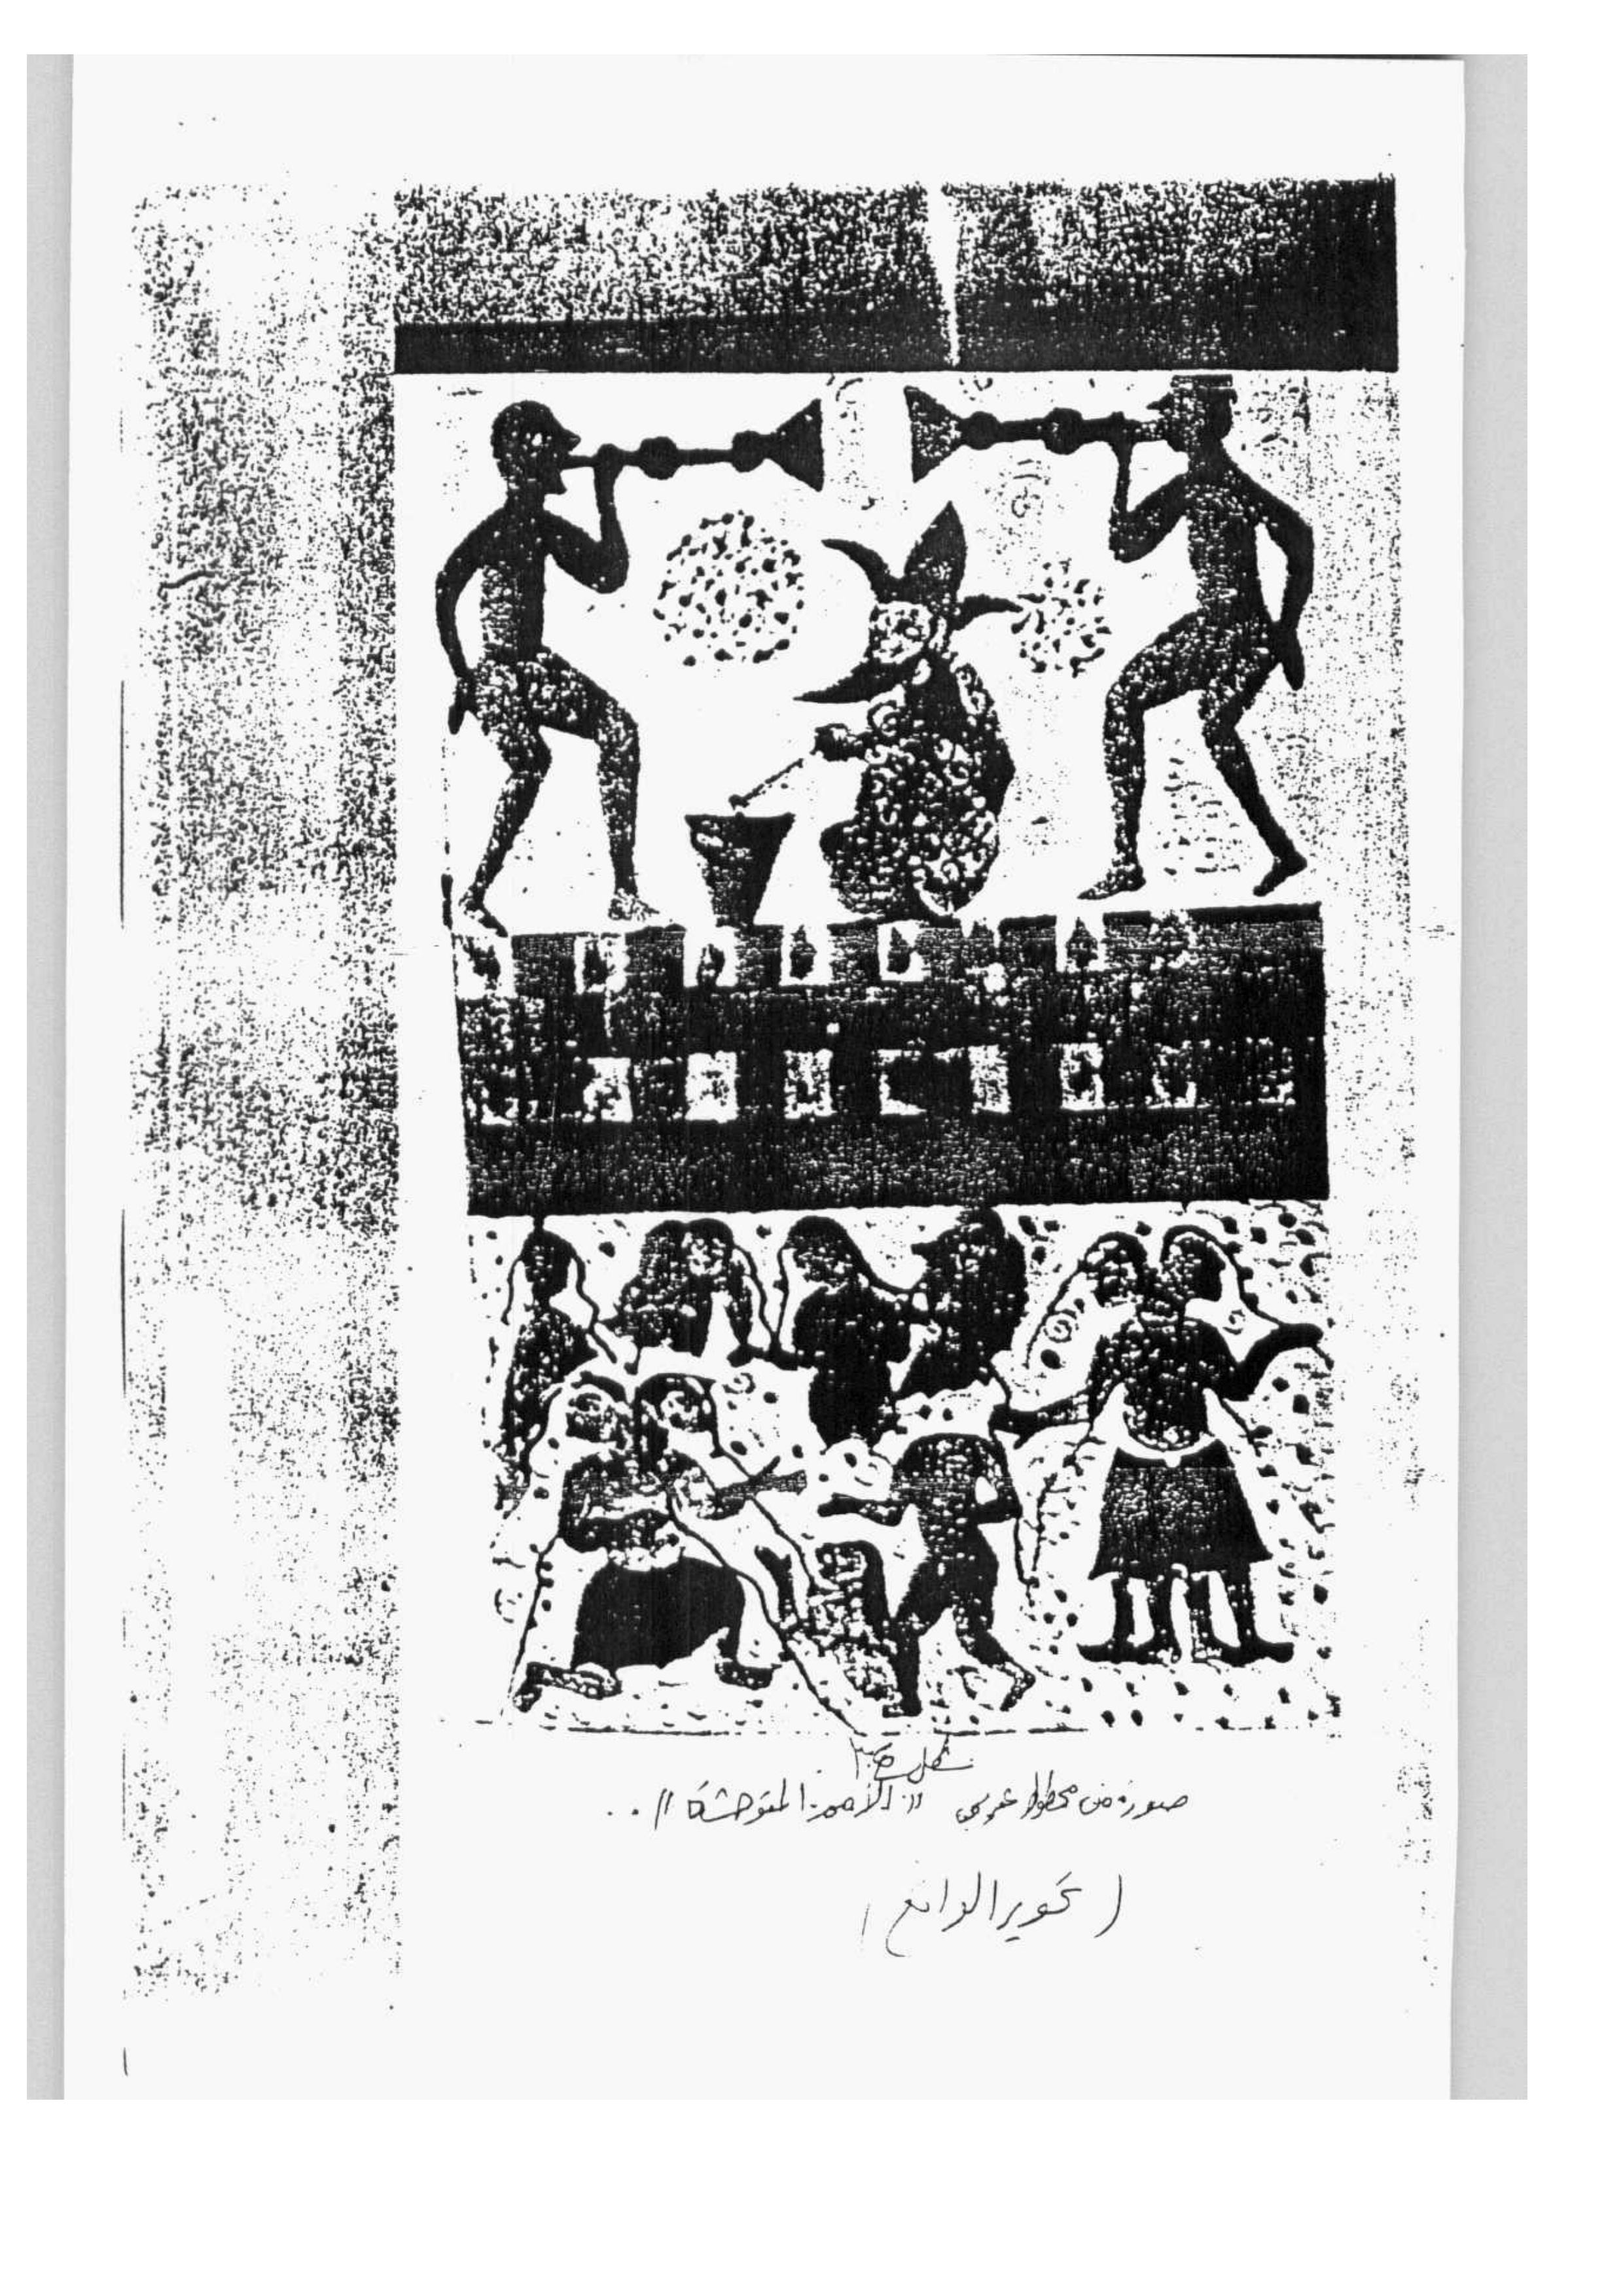 شكل
صورة من مخطوط عربي " الأمم المتوحشة " ..
( تحوير الواقع )